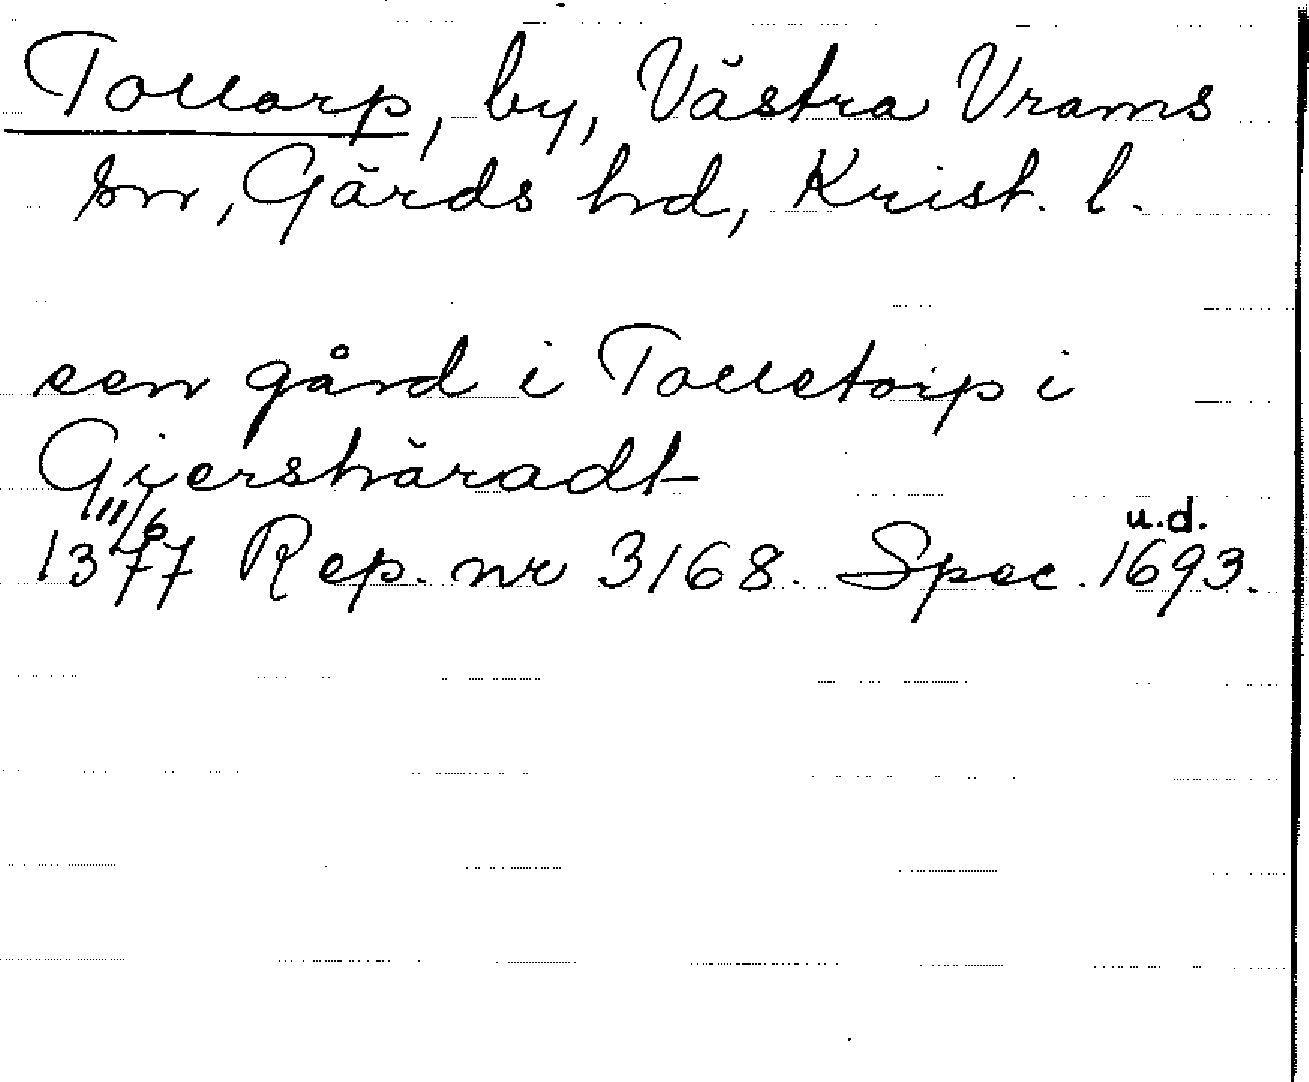 Tollarp, by, Västra Vrams
sn, Gärds hd, Krist. l.
een gård i Tolletorp i
Giershäradt
11/6
1377 Rep. nr 3168. Spec. 1693. u.d.